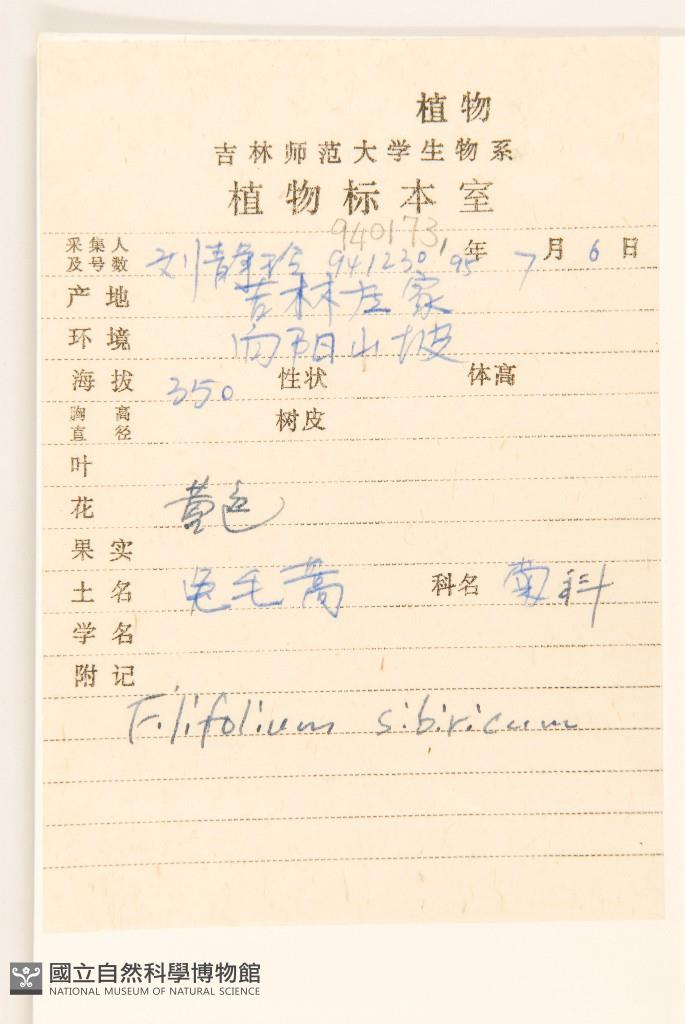 植物
吉林师范大学生物系
植物标本室
940173
采集人及号数 刘静玲 941230, 95年 7月 6日
产地 吉林左家
环境 向阳山坡
海拔 350 性状 体高
胸高直径 树皮
叶
花 黄色
果实
土名 兔毛蒿 科名 菊科
学名
附记
Filifolium sibiricum
國立自然科學博物館
NATIONAL MUSEUM OF NATURAL SCIENCE